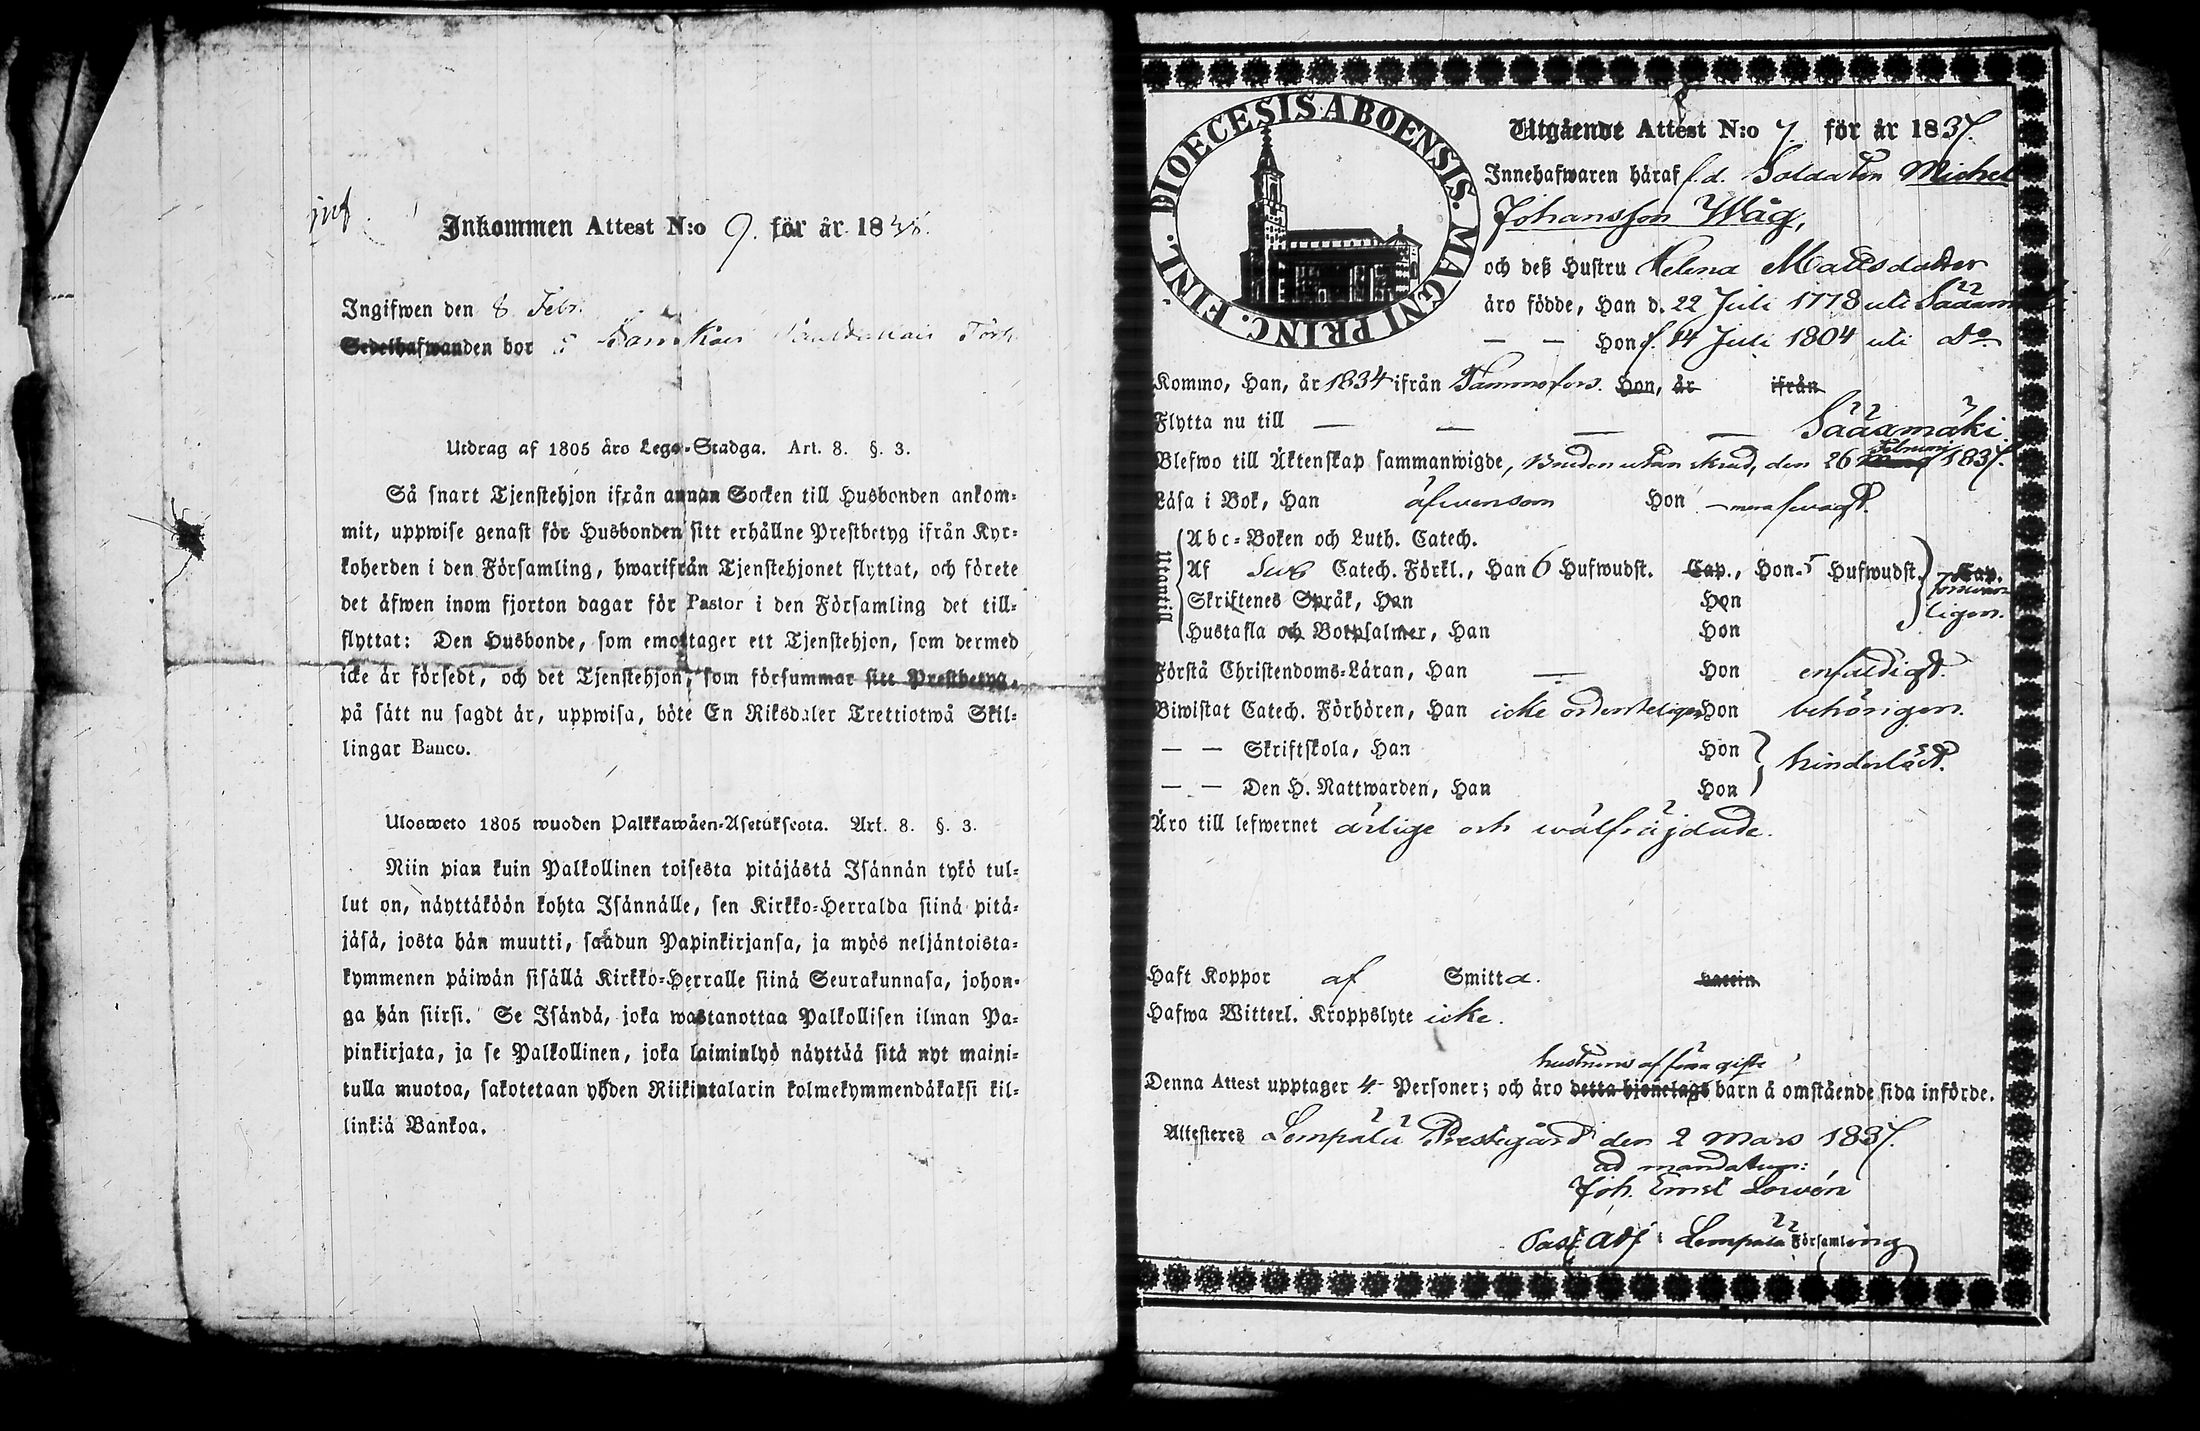 Inkommen Attest N:o 9. för år 18
Ingifwen den 8 Febr.
Sedelhafwanden bor
Utdrag af 1805 års Lego-Stadga. Art. 8. §. 3.
Så snart Tjenstehjon ifrån annan Socken till Husbonden ankom-
mit, uppwise genast för Husbonden sitt erhållne Prestbetyg ifrån Kyr-
koherden i den Församling, hwarifrån Tjenstehjonet flyttat, och förete
det äfwen inom fjorton dagar för Pastor i den Församling det till-
flyttat: Den Husbonde, som emottager ett Tjenstehjon, som dermed
icke är försedt, och det Tjenstehjon, som försummar sitt Prestbetyg,
på sätt nu sagdt är, uppwisa, böte En Riksdaler Trettiotwå Skil-
lingar Banco.
Ulosweto 1805 wuoden Palkkawäen-Asetuksesta. Art. 8. §. 3.
Niin pian kuin Palkollinen toisesta pitäjästä Isännän tykö tul-
lut on, näyttäköön kohta Isännälle, sen Kirkko-Herralda siinä pitä-
jäsä, josta hän muutti, saadun Papinkirjansa, ja myös neljäntoista-
kymmenen päiwän sisällä Kirkko-Herralle siinä Seurakunnasa, johon-
ga hän siirsi. Se Isändä, joka wastanottaa Palkollisen ilman Pa-
pinkirjata, ja se Palkollinen, joka laiminlyö näyttää sitä nyt maini-
tulla muotoa, sakotetaan yhden Riikintalarin kolmekymmendäkaksi kil-
linkiä Bankoa.
DIOECESIS ABOENSIS. MAGNI PRINC. FINL.
Utgående Attest N:o 7. för år 1837.
Innehafwaren häraf f.d. Soldaten Michel
Johansson Wåg,
och deß Hustru Helena Mattsdotter
äro födde, Han d. 22 Juli 1778 uti Sääxm
— — Hon d. 14 Juli 1804 uti Do
Kommo, Han, år 1834 ifrån Tammerfors. Hon, år ifrån
Flytta nu till — — — — Sääxmäki.
Blefwo till Äktenskap sammanwigde, Bruden utan skrud, den 26 Februarii 1837.
Läsa i Bok, Han äfwensom Hon — mera swagt.
Utantill
Abc-Boken och Luth. Catech.
Af Swb Catech. Förkl., Han 6 Hufwudst. Cap., Hon 5 Hufwudst. Cap.
Skriftenes Språk, Han Hon
ligen.
Hustafla och Botpsalmer, Han Hon
Förstå Christendoms-Läran, Han — Hon enfaldigt.
Biwistat Catech. Förhören, Han icke ordenteligen Hon behörigen.
— — Skriftskola, Han Hon
hinderlöst.
— — Den H. Nattwarden, Han Hon
Äro till lefwernet ärlige och wälfräjdade.
Haft Koppor af Smitta. vaccin
Hafwa Witterl. Kroppslyte icke.
hustruns af förra gifte
Denna Attest upptager 4 Personer; och äro detta hjonelags barn å omstående sida införde.
Attesteres Lempälä Prestegård den 2 Mars 1837.
ad mandatum:
Joh. Ernst Lovén
Past. Adj. i Lempälä Församling